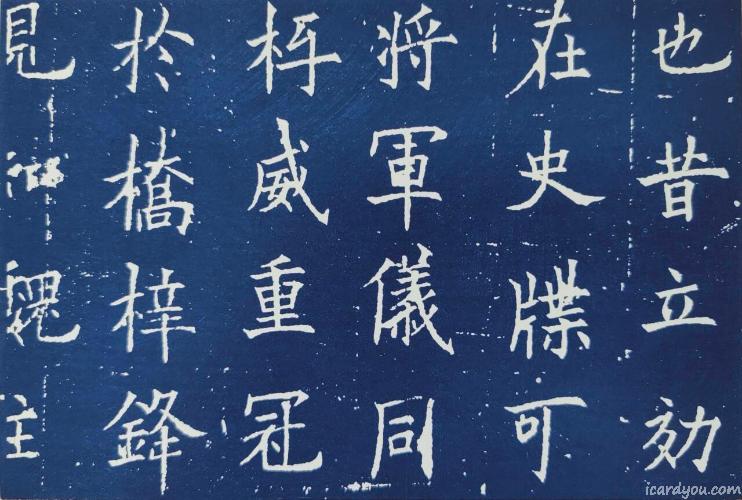 也昔立効
在史牒可
将軍儀同
威重冠
於橋梓鋒
見魏
icardyou.com